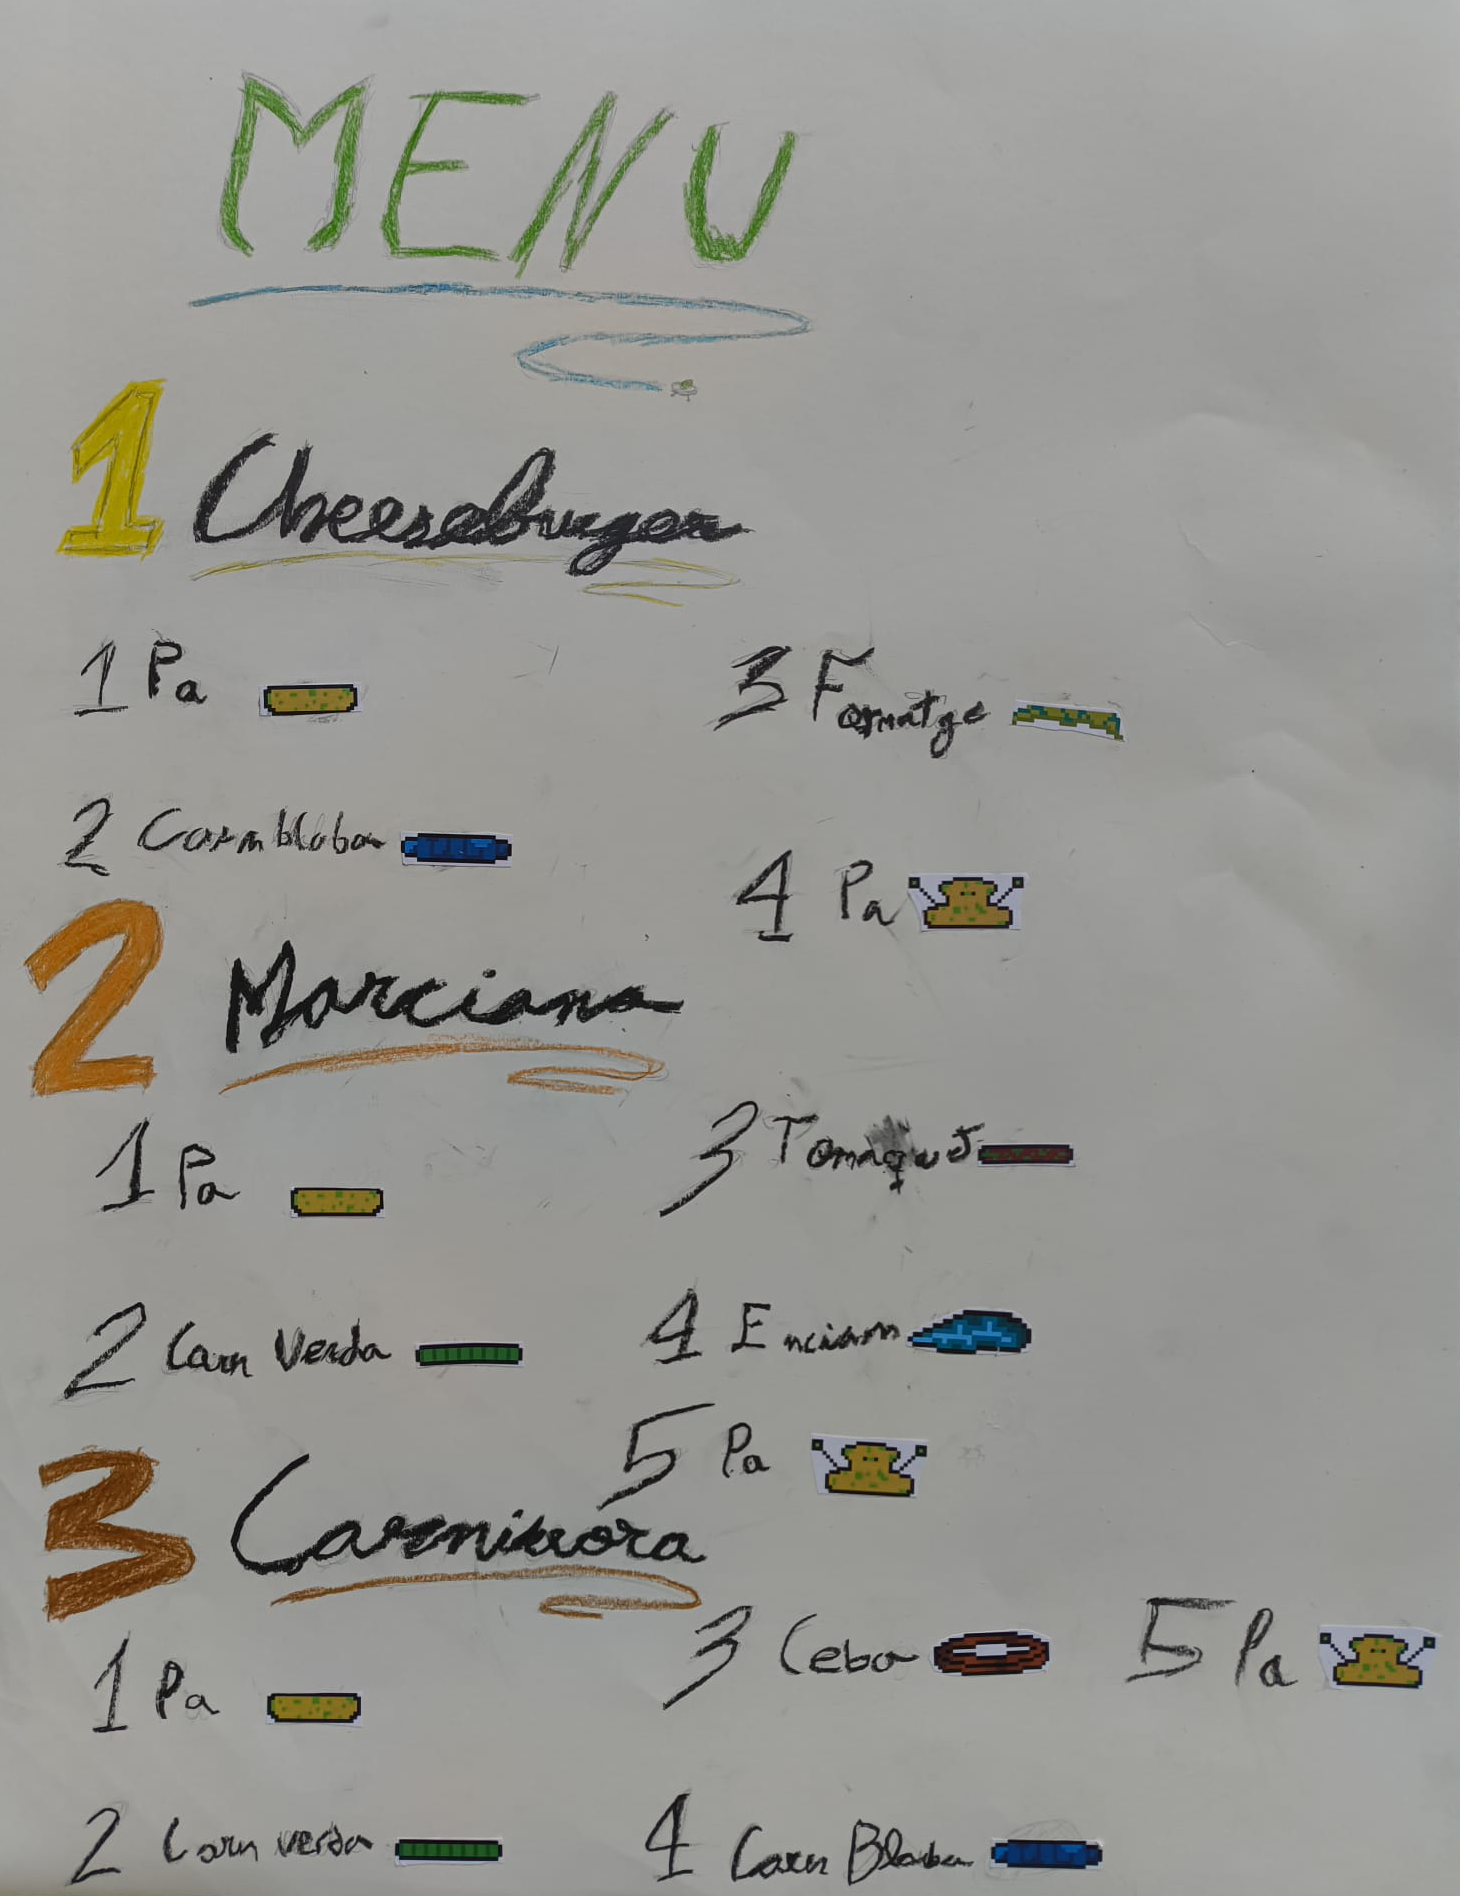 MENU
1 Cheeseburger
1 Pa
2 Carn blaba
3 Formatge
4 Pa
2 Marciana
1 Pa
2 Carn Verda
3 Tomaquet
4 Enciam
5 Pa
3 Carnivora
1 Pa
2 Carn verda
3 Ceba
4 Carn Blaba
5 Pa